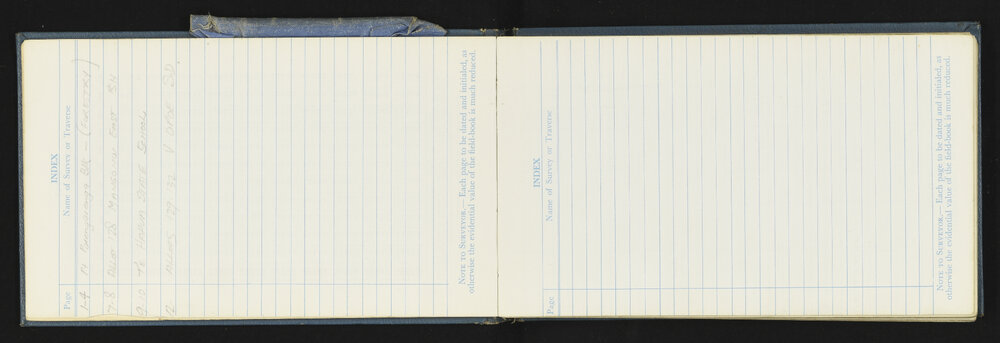 INDEX
Page Name of Survey or Traverse
1-4 (FORESTRY)
7-8 EAST S.H
9-10 TE STATE SCHOOL
12 29-32 V
NOTE TO SURVEYOR.—Each page to be dated and initialed, as
otherwise the evidential value of the field-book is much reduced.
INDEX
Page Name of Survey or Traverse
NOTE TO SURVEYOR.—Each page to be dated and initialed, as
otherwise the evidential value of the field-book is much reduced.